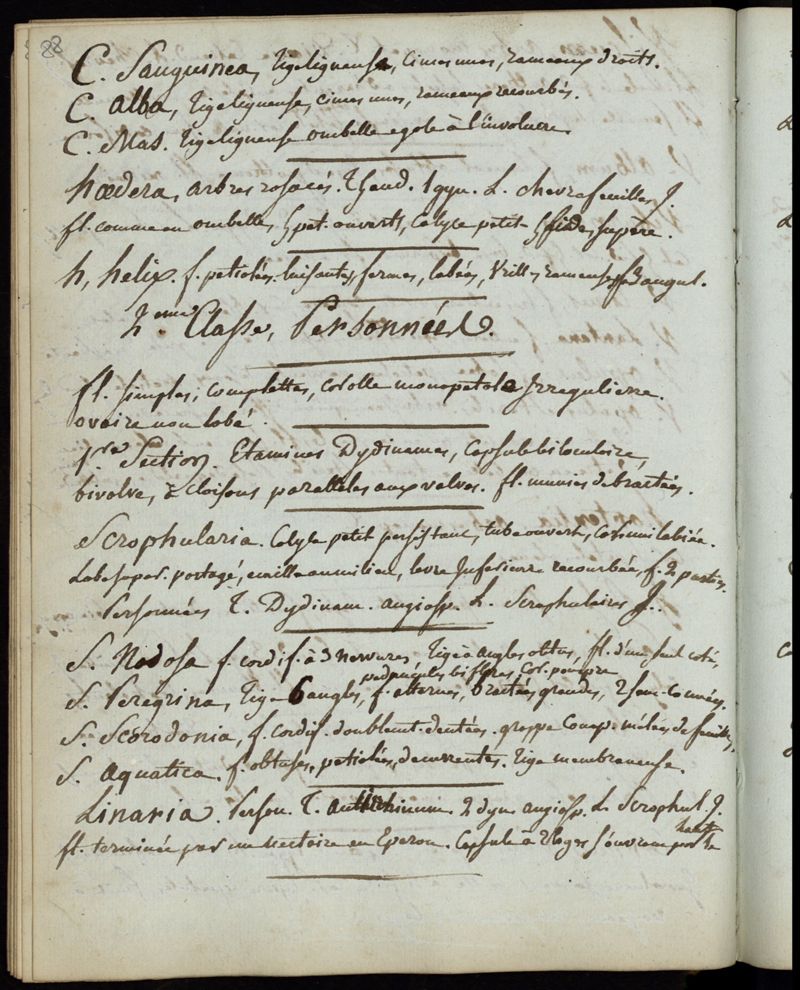 88
C. Sanguinea, Tige ligneuse, cimes nues, rameaux droits.
C. alba, Tige ligneuse, cimes nues, rameaux recourbés.
C. Mas. Tige ligneuse ombelle egale à l'involucre.
hœdera, arbres rosacés. T. 5and. 1gyn. L. chevrefeuilles J.
fl. comme en ombelle, 5 pet. ouverts, Calyce petit 5fide, supère.
h, helix. f. petiolés. luisantes, fermes, lobées, Vrilles rameuses, f. 3 angul.
2eme Classe, Personnées.
fl. simples, complettes, corolle monopetale Irreguliere.
ovaire non lobé.
1re Section. Etamines Dydinames, Capsule biloculaire,
bivalve, à cloisons paralleles aux valves. fl. munies de bractées.
Scrophularia. Calyce petit persistant, tube ouvert, Cor. bilabiée.
Labe super. partagé, ecaille au milieu, levre Inferieure recourbée, f. 2 parties.
Personnées T. Dydinam. angiosp. L. Scrophulaires J.
S. Nodosa f. cordif. à 3 nervures, Tige à angles obtus, fl. d'un seul coté,
pedoncules biflores, Cor. pourpre
S. Peregrina, Tige 6 angles, f. alternes, bractées grandes, 2
S. Scorodonia, f. cordif. doublemt. dentées. grappe Comp. mélée de feuilles,
S. aquatica. f. obtuses, petiolées, decurrentes. Tige membraneuse.
Linaria. Person. T. antirrhinum. 2dyn angiosp. L. Scrophul. J.
haut
fl. terminée par un nectaire en Eperon. Capsule à 2 loges s'ouvrant par le